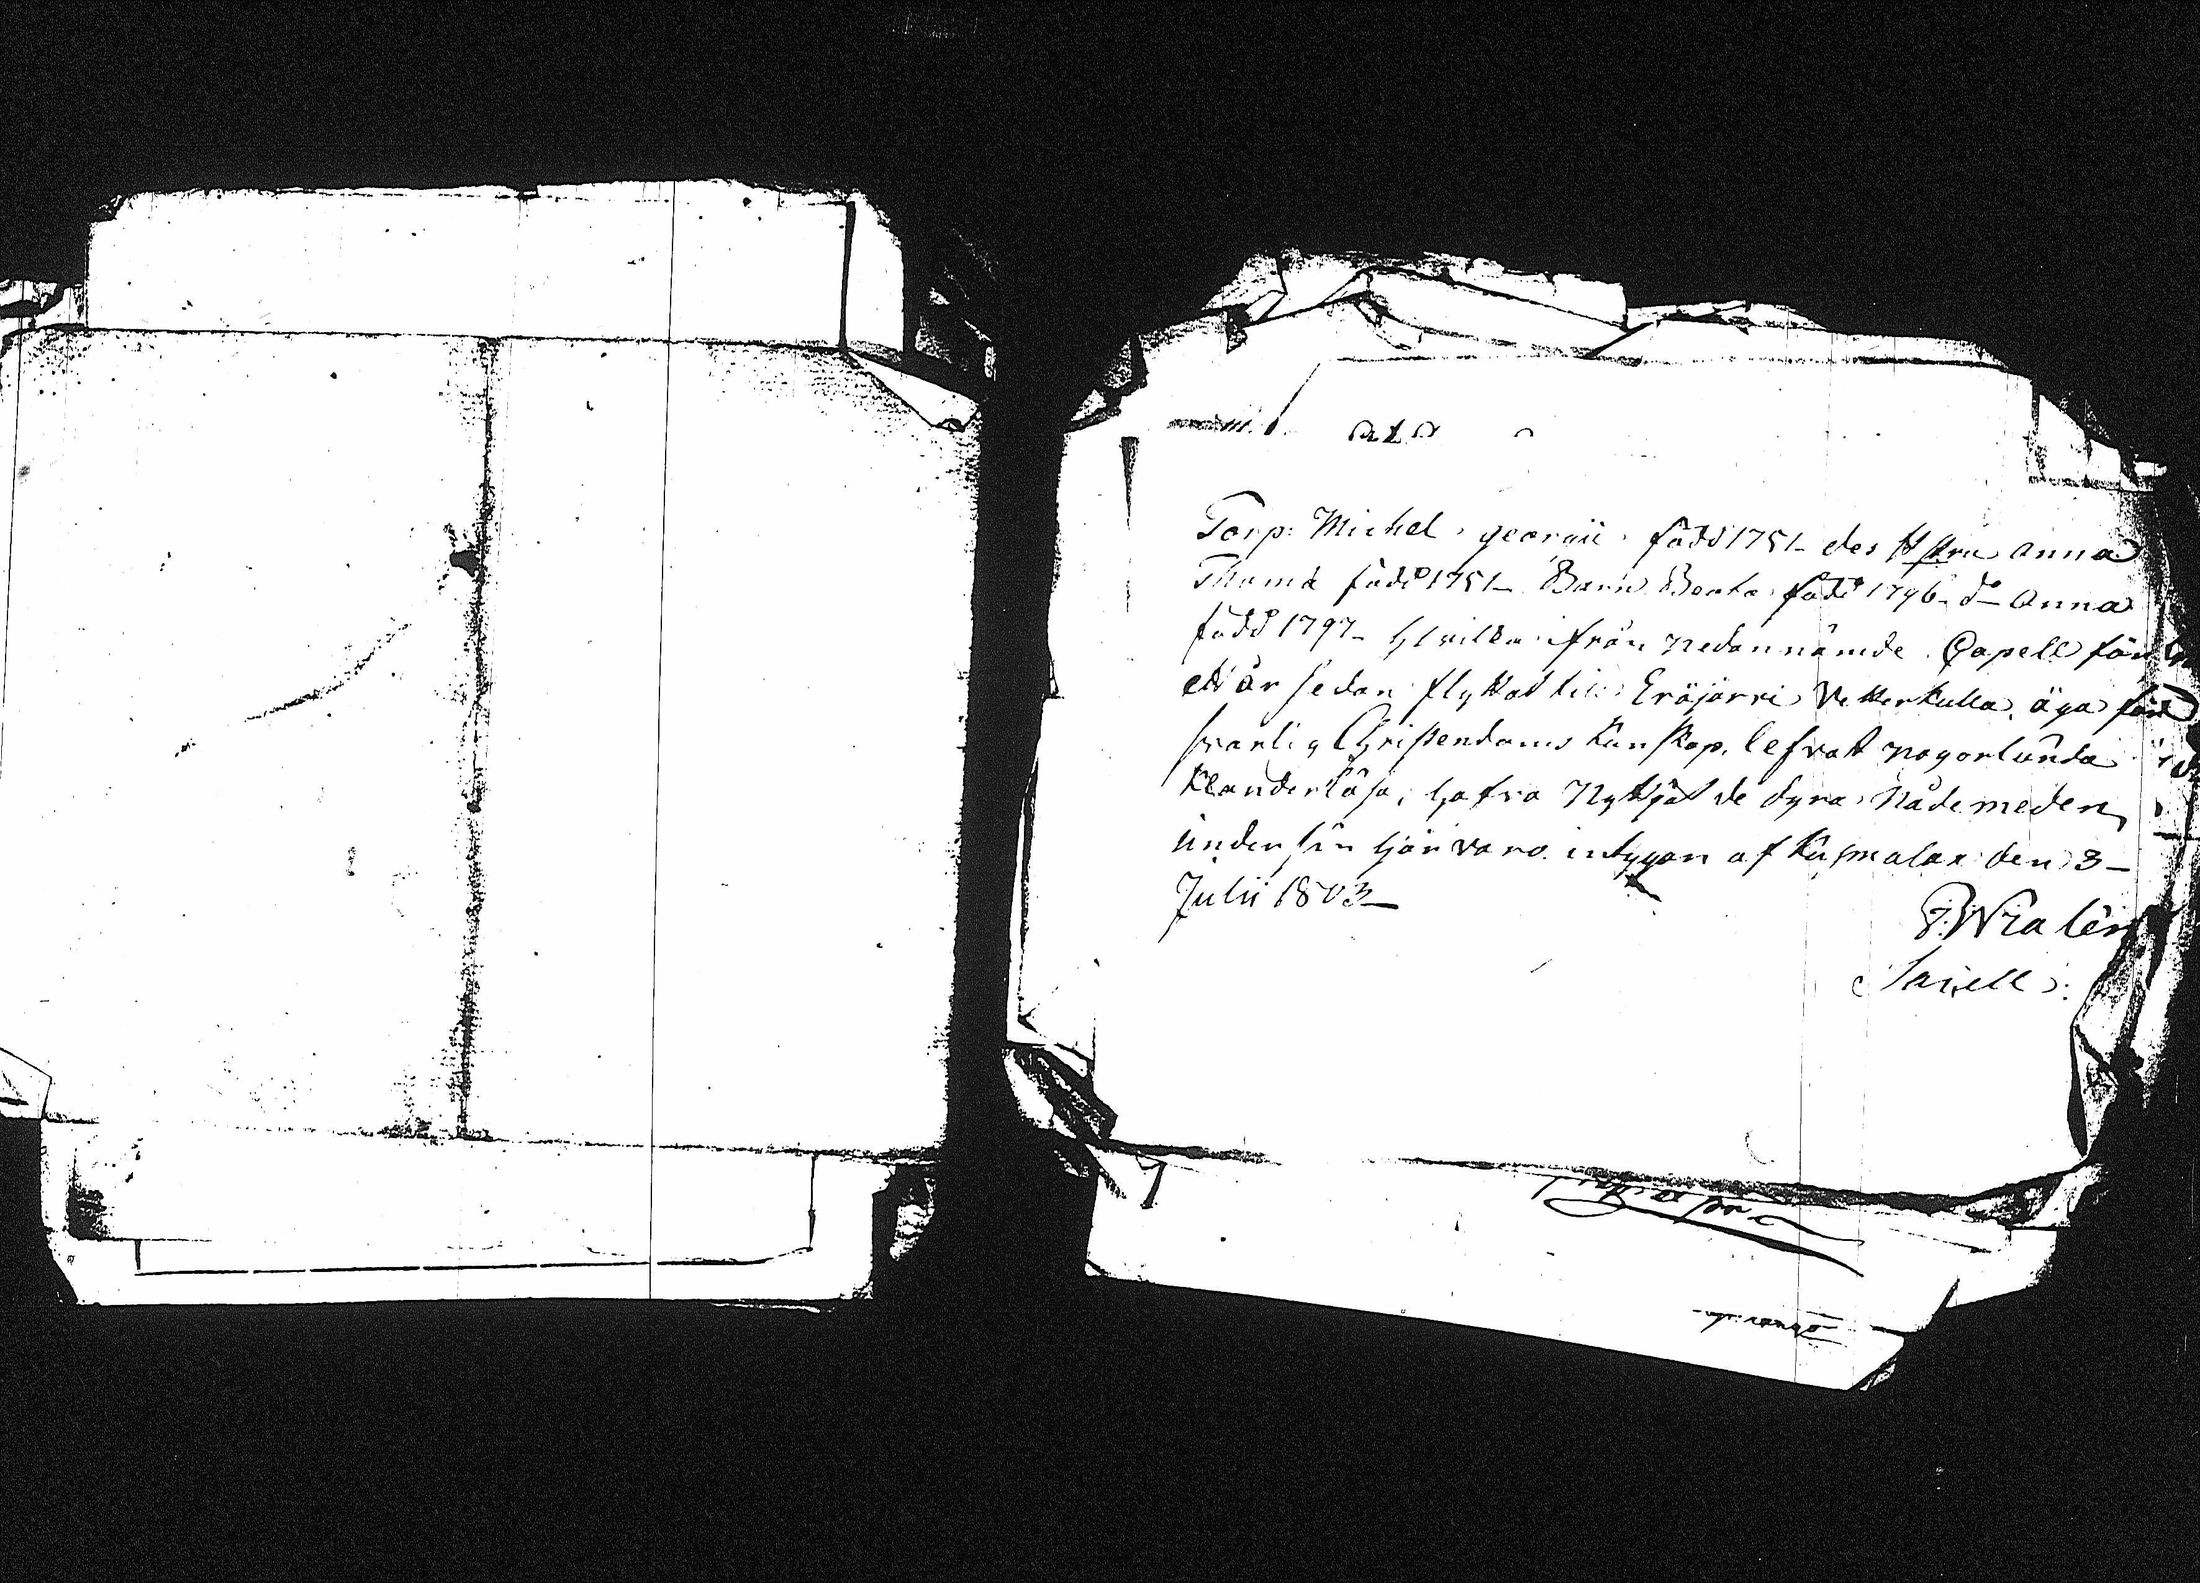 Torp: Michel georgii född 1751 – des Hustru Anna
Thomæ född 1751 – Barn Beata född 1796 – do Anna
född 1797 – Hvilka ifrån nedannämde Capell för
ett år sedan flyttat till Eräjärvi Vetterkulla, äga för
svarlig Christendoms Kunskap, lefvat nogorlunda
klanderlösa, hafva Nyttjat de dyra Nådemeden,
under sin härvaro. intygar af Kuhmalax den 3 –
Julii 1803 –
Sacell: